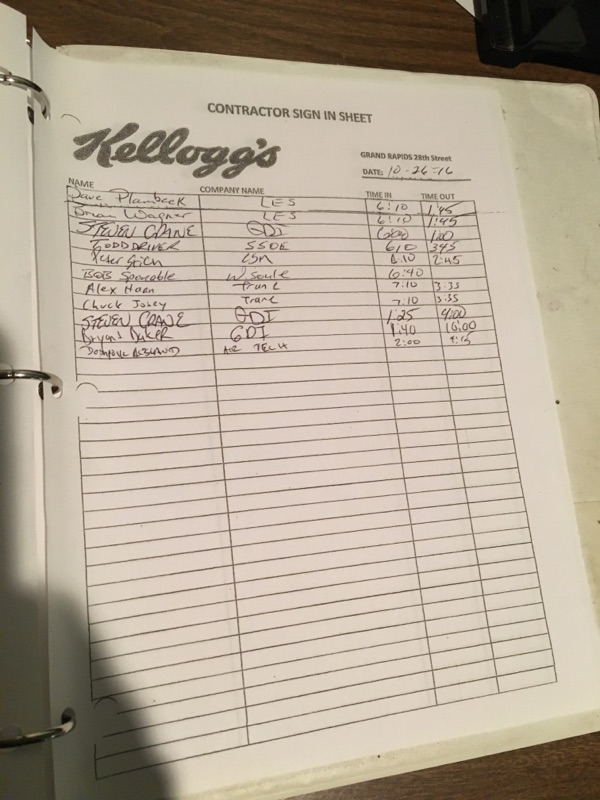 CONTRACTOR SIGN IN SHEET
Kellogg's
GRAND RAPIDS 28th Street
DATE: 10-26-16
NAME COMPANY NAME TIME IN TIME OUT
Dave Plambeck LES 6:10 1:45
Brian Wagner LES 6:10 1:45
STEVEN CRANE GDI 6:00 1:00
TODD DRIVER SSOE 6:10 3:45
Peter 6:10 2:45
BOB W. Soule 6:40
Alex Haan Trane 7:10 3:35
Chuck Trane 7:10 3:35
STEVEN CRANE GDI 1:25 4:00
Bryan Baker GDI 1:40 10:00
AIR TECH 2:00